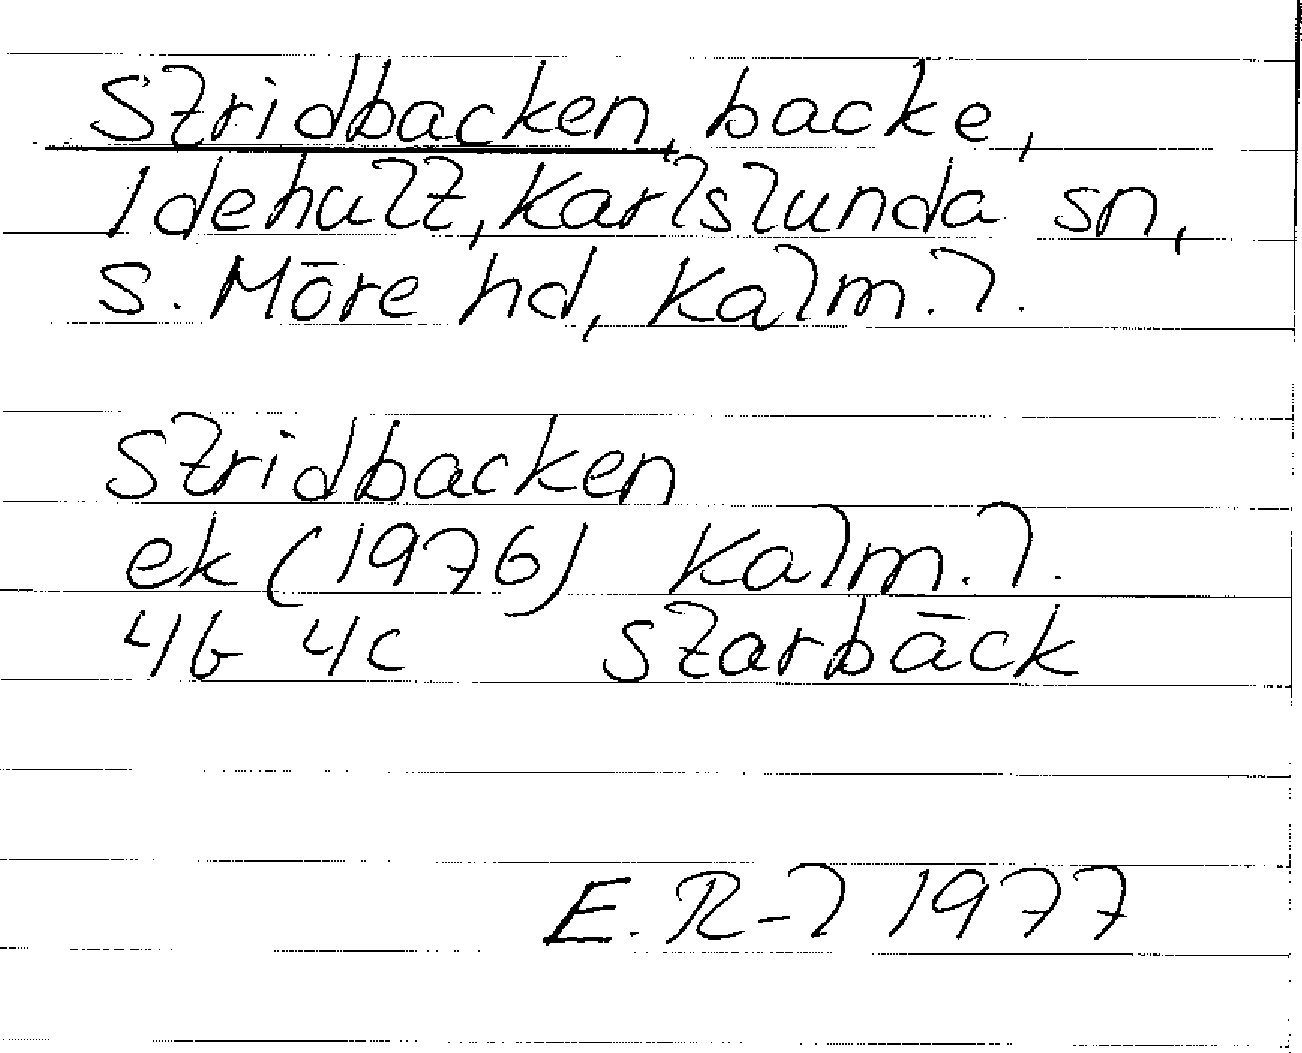 Stridbacken, backe,
Idehult, Karlslunda sn,
S. Möre hd, Kalm. l.
Stridbacken
ek (1976) Kalm. l.
4b 4c Starbäck
E. R-l 1977